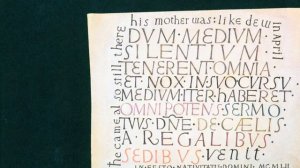 he came al so still there
his mother was: like dew
in April
DVM MEDIVM
SILENTIVM
TENERENT OMNIA
ET NOX IN SVO CVRSV
MEDIVM ITER HABERET
OMNIPOTENS SERMO
TVVS DNE DE CÆLIS
A REGALIBVS
SEDIBVS venit
IN FESTO NATIVITATIS DOMINI